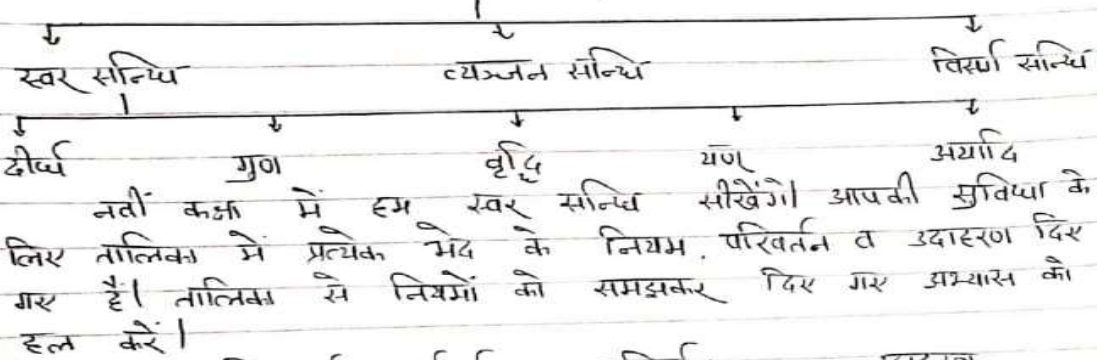 स्वर सन्धि व्यञ्जन सन्धि विसर्ग सन्धि
दीर्घ गुण वृद्धि यण् अयादि
नवीं कक्षा में हम स्वर सन्धि सीखेंगे। आपकी सुविधा के
लिए तालिका में प्रत्येक भेद के नियम, परिवर्तन व उदाहरण दिए
गए हैं। तालिका से नियमों को समझकर दिए गए अभ्यास को
हल करें।